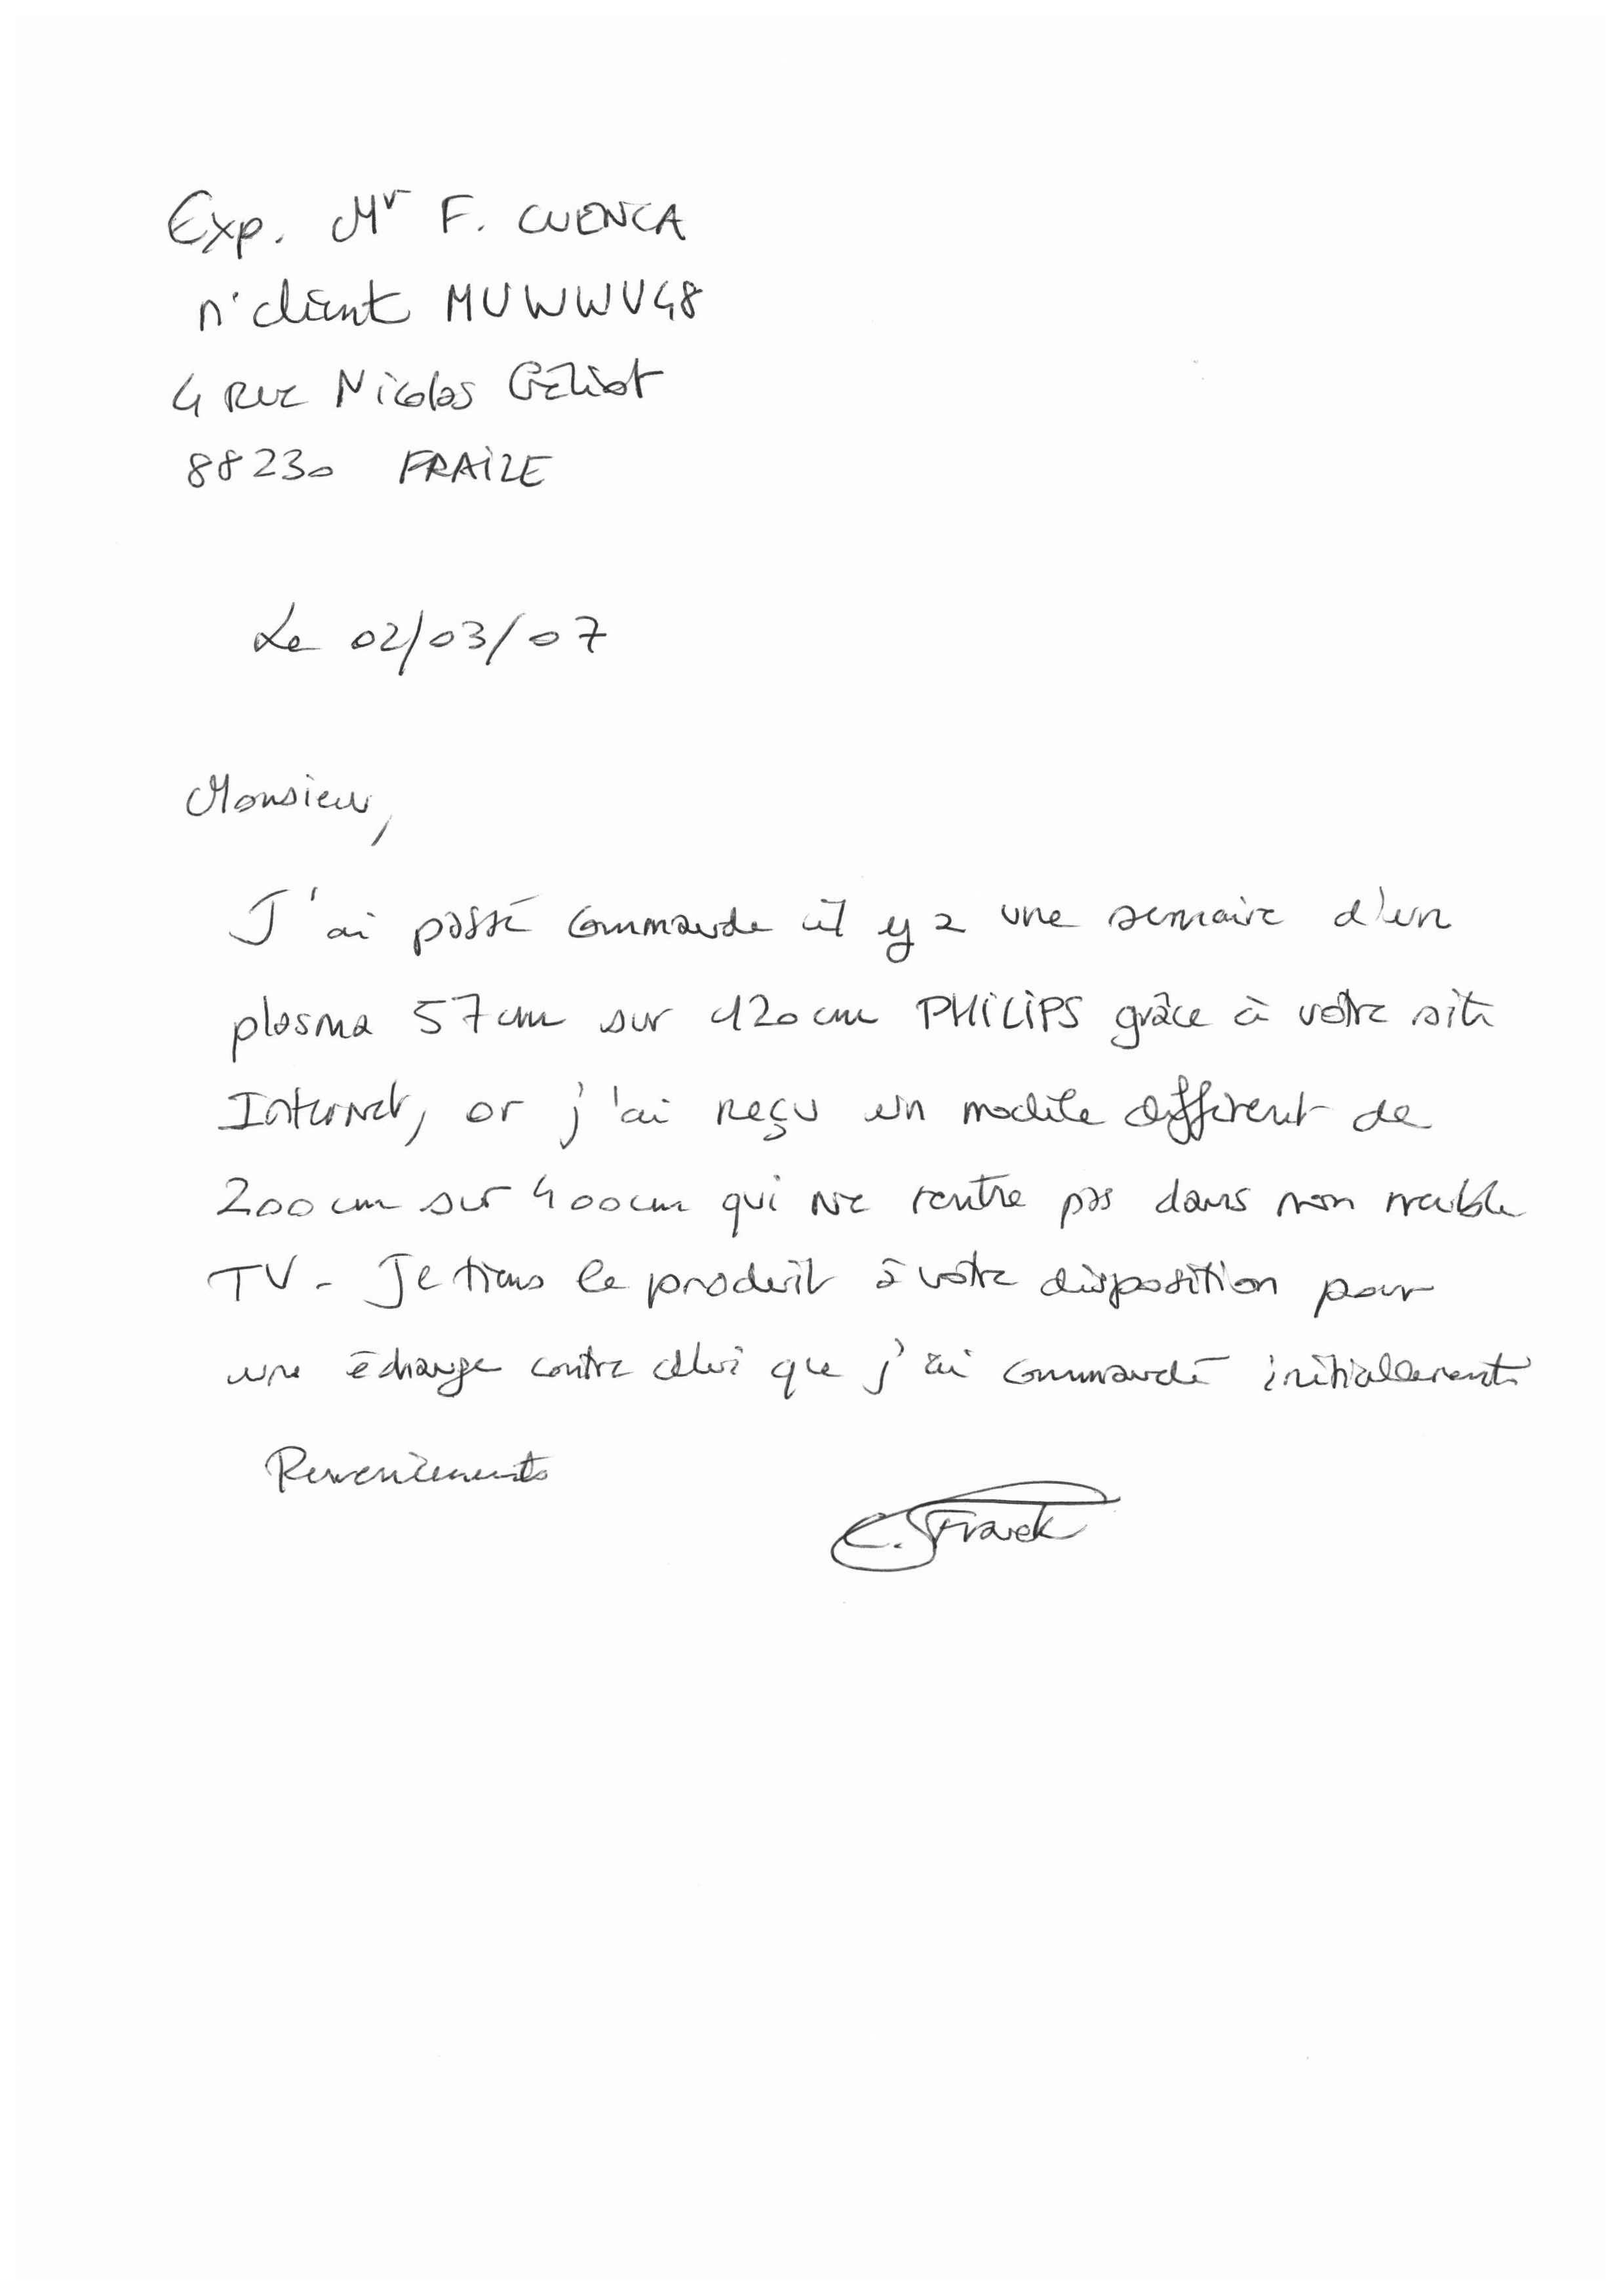 Exp. Mr F. CUENCA
n° client MUWWV48
4 Rue Nicolas Géliot
88230 FRAIZE
Le 02/03/07
Monsieur,
J'ai passé commande il y a une semaine d'un
plasma 57cm sur 120cm PHILIPS grâce à votre site
Internet, or j'ai reçu un modèle différent de
200cm sur 400cm qui ne rentre pas dans mon meuble
TV. Je tiens le produit à votre disposition pour
une échange contre celui que j'ai commandé initialement
Remerciements
C. Franck